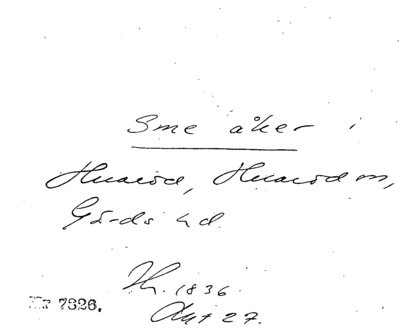 Sme åker i
Huaröd, Huaröd sn,
Gärds hd.
1836
Akt 27.
Nr 7326.